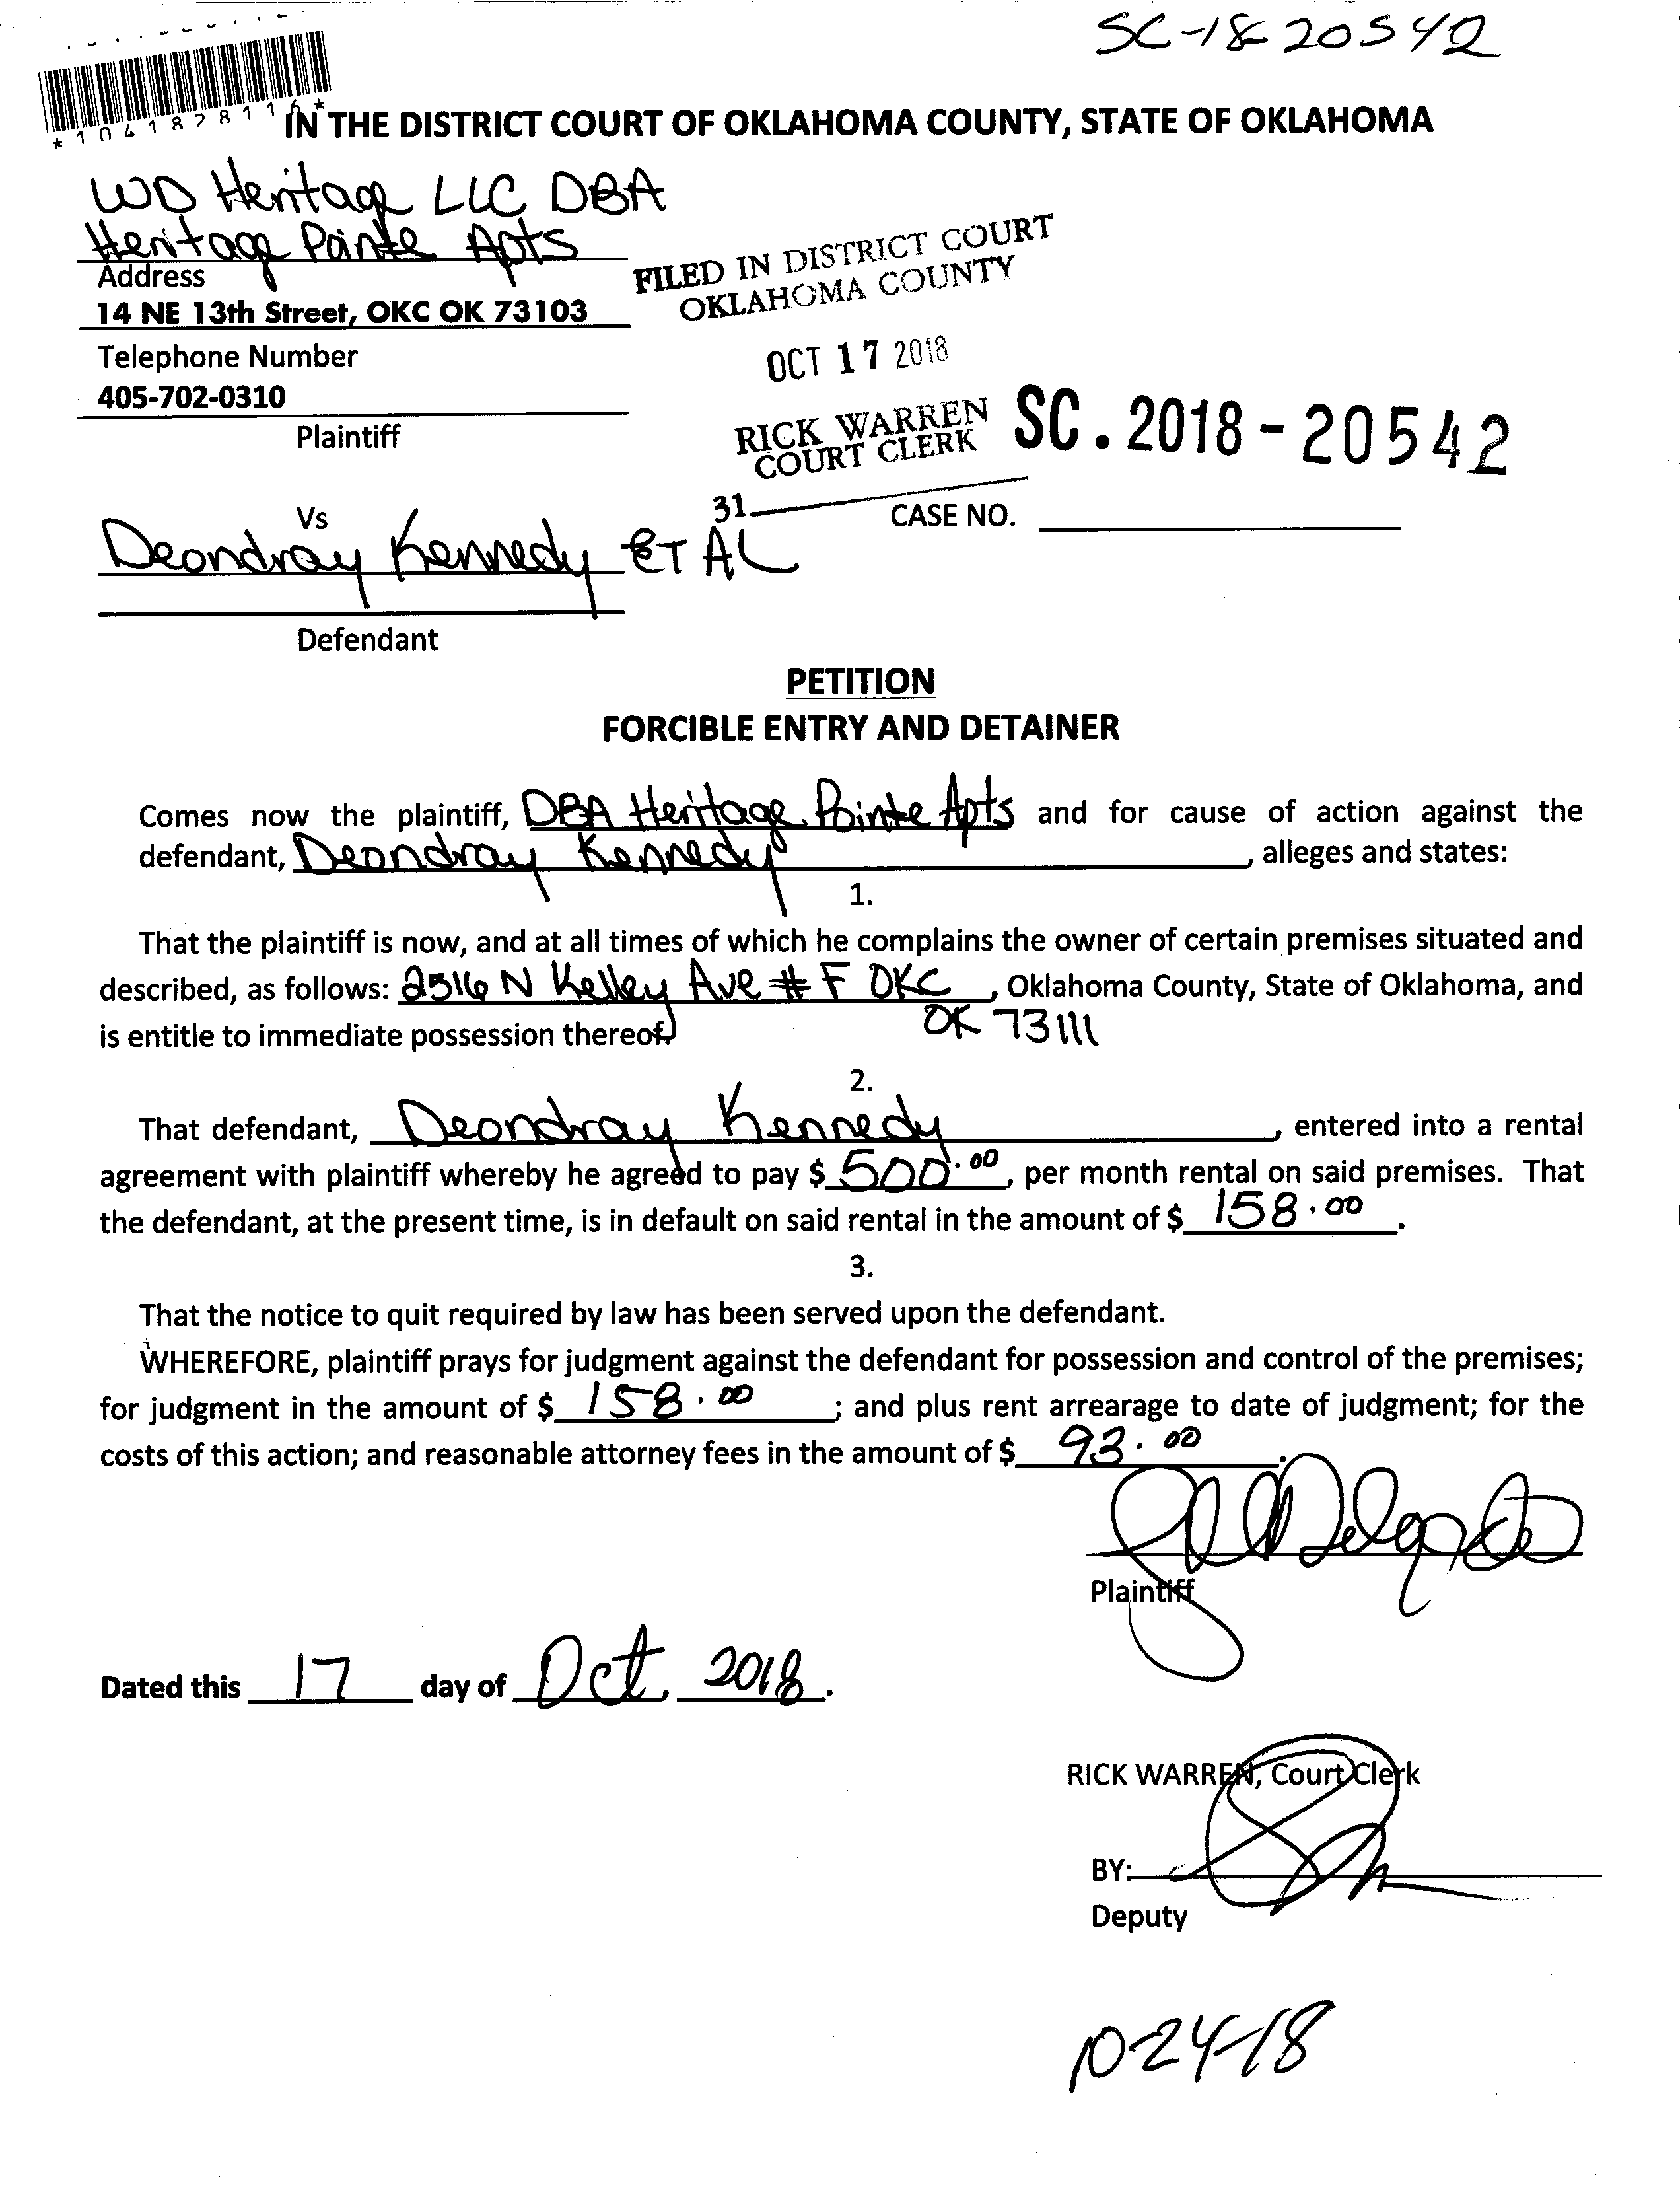 SC-18-20542
*1041878116*
IN THE DISTRICT COURT OF OKLAHOMA COUNTY, STATE OF OKLAHOMA
WD Heritage LLC DBA
Heritage Pointe Apts
Address
14 NE 13th Street, OKC OK 73103
Telephone Number
405-702-0310
Plaintiff
FILED IN DISTRICT COURT
OKLAHOMA COUNTY
OCT 17 2018
RICK WARREN
COURT CLERK
31
SC.2018-20542
CASE NO.
Vs
Deondray Kennedy ET AL
Defendant
PETITION
FORCIBLE ENTRY AND DETAINER
Comes now the plaintiff, DBA Heritage Pointe Apts and for cause of action against the
defendant, Deondray Kennedy, alleges and states:
1.
That the plaintiff is now, and at all times of which he complains the owner of certain premises situated and
described, as follows: 2516 N Kelley Ave # F OKC, Oklahoma County, State of Oklahoma, and
is entitle to immediate possession thereof. OK 73111
2.
That defendant, Deondray Kennedy, entered into a rental
agreement with plaintiff whereby he agreed to pay $ 500.00, per month rental on said premises. That
the defendant, at the present time, is in default on said rental in the amount of $ 158.00.
3.
That the notice to quit required by law has been served upon the defendant.
WHEREFORE, plaintiff prays for judgment against the defendant for possession and control of the premises;
for judgment in the amount of $ 158.00; and plus rent arrearage to date of judgment; for the
costs of this action; and reasonable attorney fees in the amount of $ 93.00.
Delgado
Plaintiff
Dated this 17 day of Oct. 2018.
RICK WARREN, Court Clerk
BY:
Deputy
10-24-18